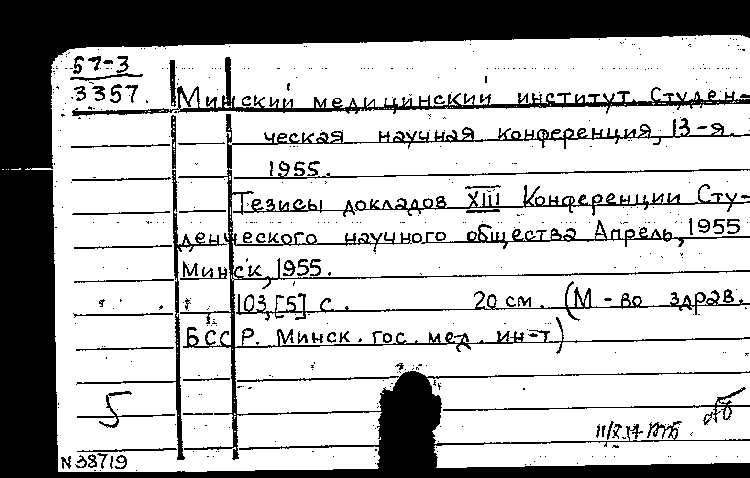 57-3
3357. Минский медицинский институт. Студен-
ческая научная конференция, 13-я.
1955.
Тезисы докладов XIII Конференции Сту-
денческого научного общества Апрель, 1955
Минск, 1955.
103, [5] с. 20 см. (М-во здрав.
БССР. Минск. гос. мед. ин-т)
5
N 38719